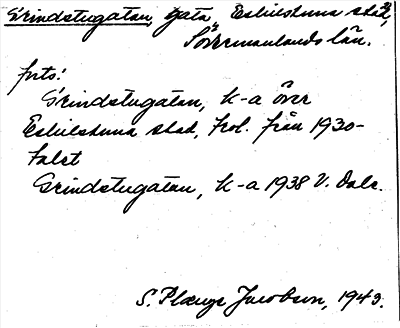 Grindstugatan, gata, Eskilstuna stad,
Södermanlands län.
forts:
Grindstugatan, k-a över
Eskilstuna stad, trol. från 1930-
talet
Grindstugatan, k-a 1938 V. Dale.
S. Plænge Jacobson, 1943.